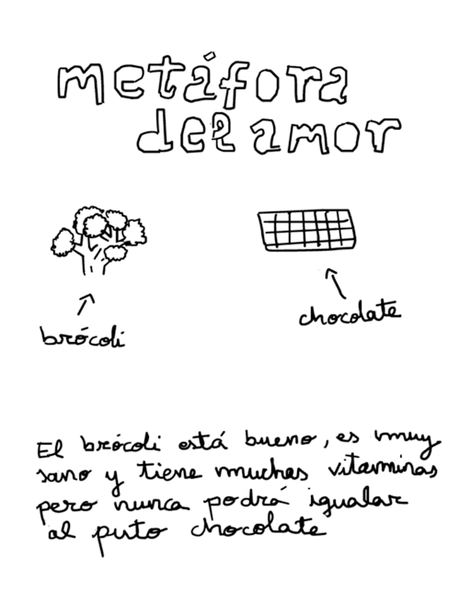 metáfora
del amor
brócoli
chocolate
El brócoli está bueno, es muy
sano y tiene muchas vitaminas
pero nunca podrá igualar
al puto chocolate